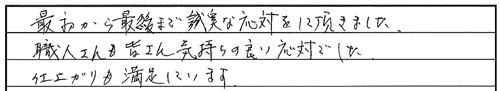 最初から最後まで誠実な応対をして頂きました。
職人さんも皆さん気持ちの良い応対でした。
仕上がりも満足しています。